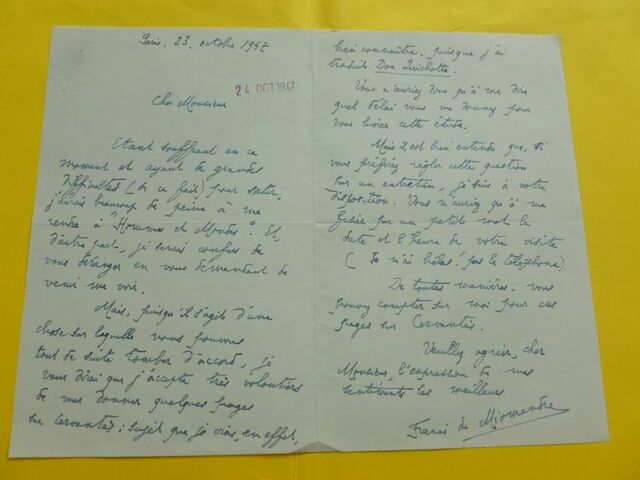 Paris. 23. octobre 1947
24 OCT 1947
Cher Monsieur
Etant souffrant en ce
moment et ayant de grandes
difficultés (de ce fait) pour sortir,
j'aurais beaucoup de peine à me
rendre à "Hommes et Mondes". Et,
d'autre part, je serais confus de
vous déranger en vous demandant de
venir me voir.
Mais, puisqu'il s'agit d'une
chose sur laquelle nous pouvons
tout de suite tomber d'accord, je
vous dirai que j'accepte très volontiers
de vous donner quelques pages
sur Cervantès : sujet que je crois, en effet,
bien connaître, puisque j'ai
traduit Don Quichotte.
Vous n'auriez donc qu'à me dire
quel délai vous me donnez pour
vous livrer cette étude.
Mais il est bien entendu que, si
vous préférez régler cette question
par un entretien, je suis à votre
disposition. Vous n'auriez qu'à me
fixer par un petit mot la
date et l'heure de votre visite
(Je n'ai hélas! pas le téléphone).
De toutes manières, vous
pouvez compter sur moi pour ces
pages sur Cervantès.
Veuillez agréer, cher
Monsieur, l'expression de mes
sentiments les meilleurs
Francis de Miomandre